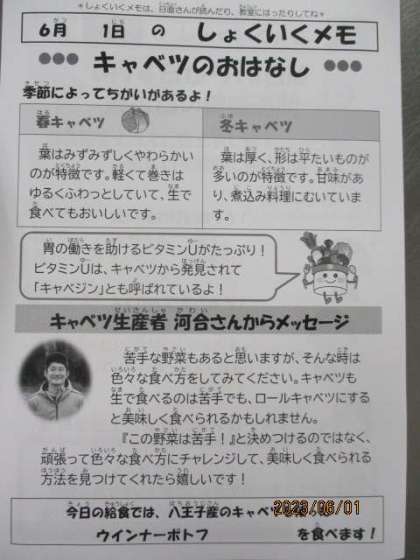 ＊しょくいくメモは、日直さんが読んだり、教室にはったりしてね＊
6月 1日 の しょくいくメモ
●●● キャベツのおはなし ●●●
季節によってちがいがあるよ！
春キャベツ
葉はみずみずしくやわらかい
のが特徴です。軽くて巻きは
ゆるくふわっとしていて、生で
食べてもおいしいです。
冬キャベツ
葉は厚く、形は平たいものが
多いのが特徴です。甘味があ
り、煮込み料理にむいていま
す。
胃の働きを助けるビタミンUがたっぷり！
ビタミンUは、キャベツから発見されて
「キャベジン」とも呼ばれているよ！
キャベツ生産者 河合さんからメッセージ
苦手な野菜もあると思いますが、そんな時は
色々な食べ方をしてみてください。キャベツも
生で食べるのは苦手でも、ロールキャベツにする
と美味しく食べられるかもしれません。
『この野菜は苦手！』と決めつけるのではなく、
頑張って色々な食べ方にチャレンジして、美味しく食べられる
方法を見つけてくれたら嬉しいです！
今日の給食では、八王子産のキャベツを
ウインナーポトフ を食べます！
2023/06/01